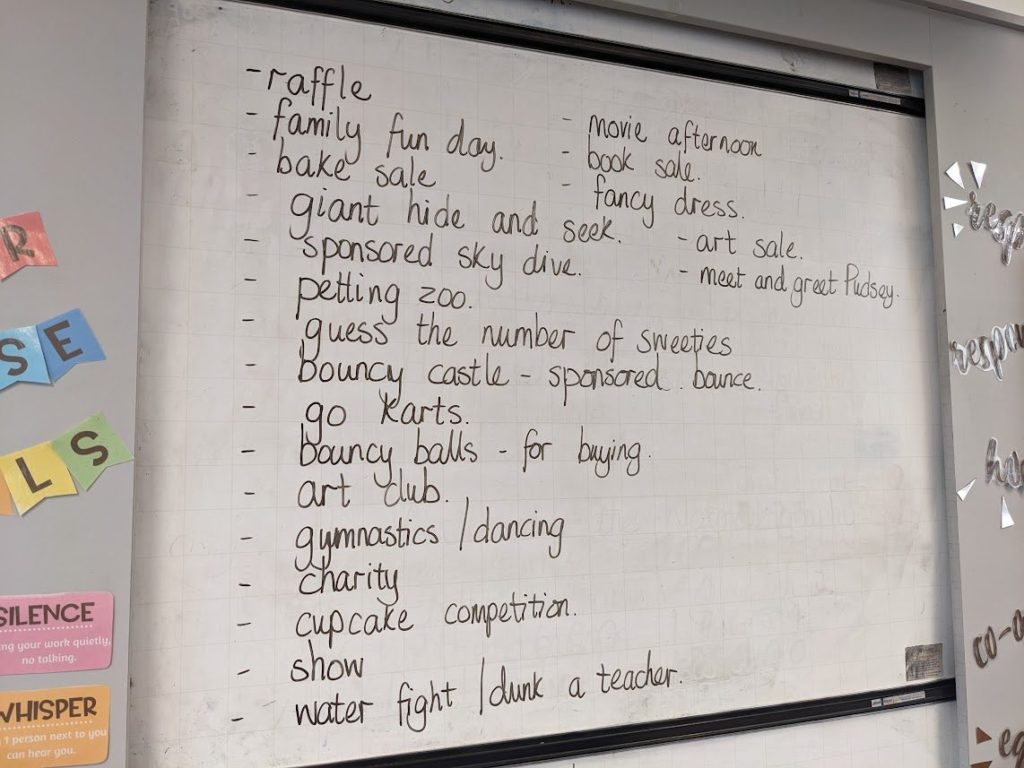 - raffle
- family fun day.
- bake sale
- giant hide and seek.
- sponsored sky dive.
- petting zoo.
- guess the number of sweeties
- bouncy castle - sponsored bounce.
- go karts.
- bouncy balls - for buying.
- art club.
- gymnastics / dancing
- charity
- cupcake competition.
- show
- water fight / dunk a teacher.
- movie afternoon
- book sale.
- fancy dress.
- art sale.
- meet and greet Pudsey.
R
SE
LS
SILENCE
your work quietly,
no talking.
WHISPER
1 person next to you
can hear you.